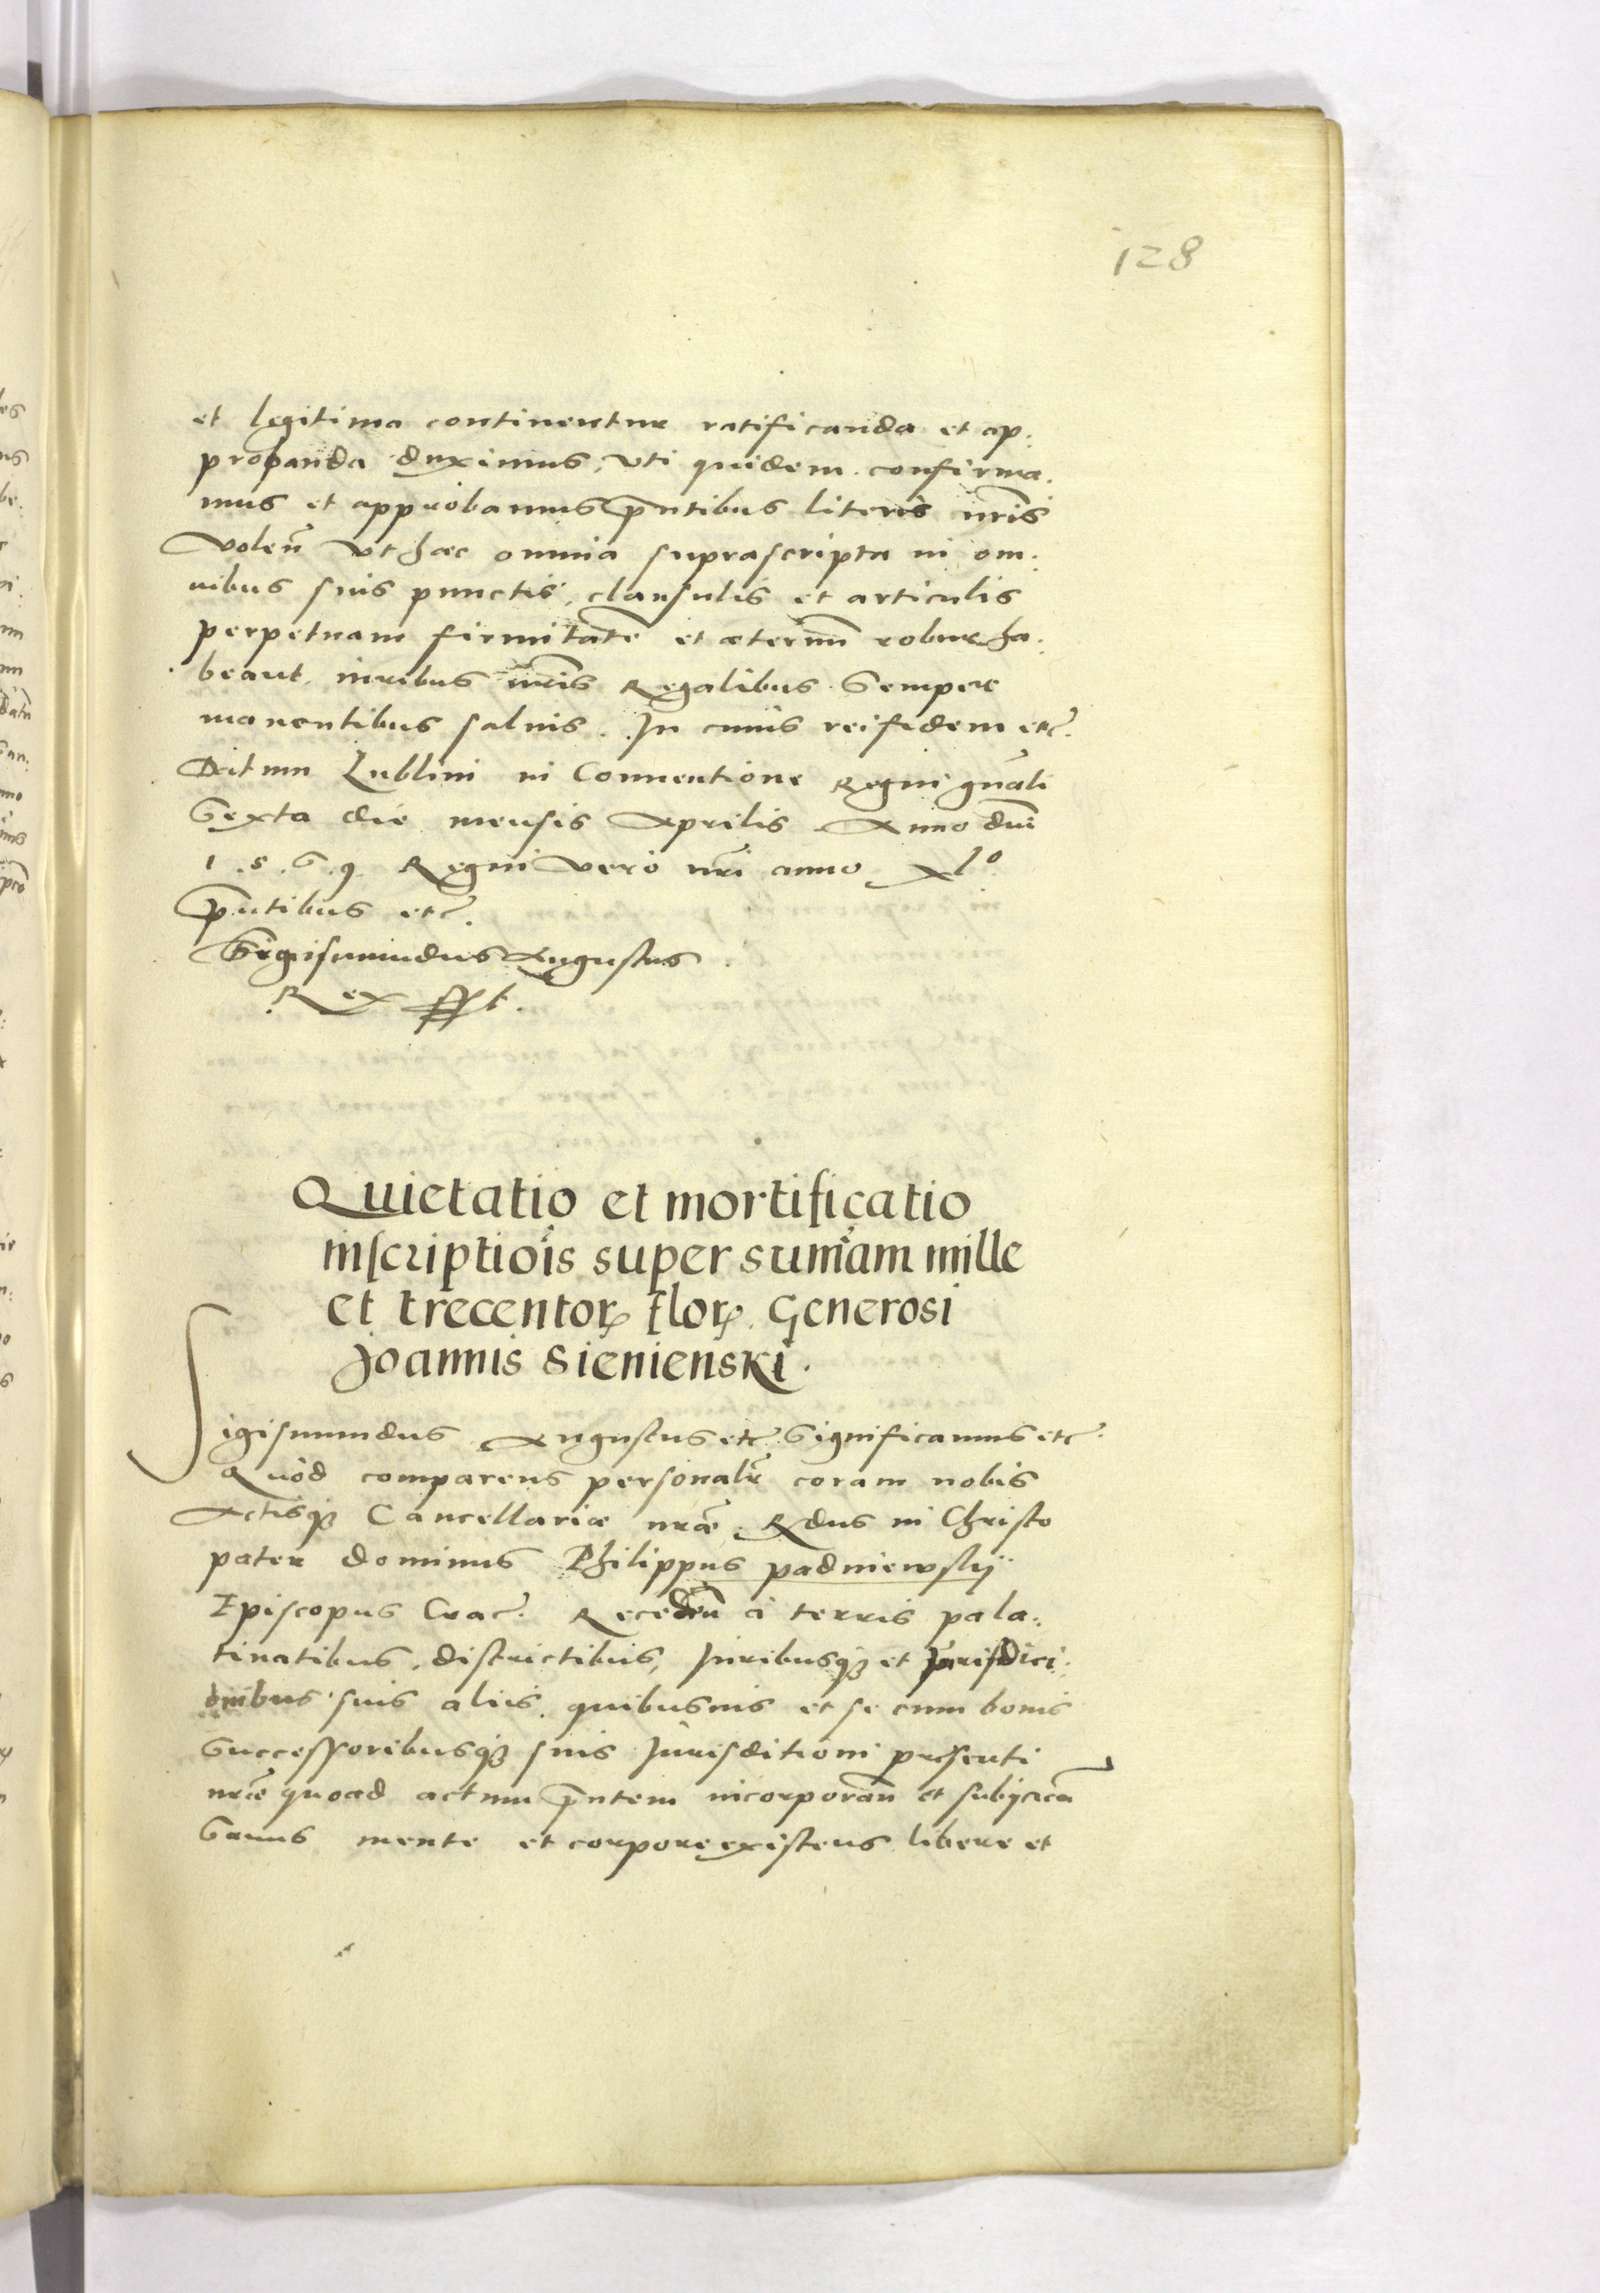 128
et legitima continentur ratificanda et ap:
probanda duximus, Vti quidem confirma:
mus et approbamus pñtibus literis nr̃is
Voleñ Vt hæc omnia suprascripta in om:
nibus suis punctis, clausulis et articulis
perpetuam firmitatẽ et æternũ robur ha:
beant. iuribus nr̃is Regalibus Semper
manentibus saluis. In cuius rei fidem etc̃.
Datum Lublini in Conuentione Regni gñali
Sexta die mensis Aprilis Anno dñi
1.5.6.9. Regni Vero nr̃i anno Xlᵒ
pñtibus etc̃.
Sigismundus Augustus
Rex sst.
Quietatio et mortificatio
inscriptiõis super sum̃am mille
et trecentoꝝ floꝝ. Generosi
Joannis Sienienski.
Sigismundus Augustus etc̃. Significamus etc̃.
Quòd comparens personalr̃ coram nobis
Actisqꝫ Cancellariæ nr̃æ, Rdus in Christo
pater dominus Philippus padniewskÿ
Episcopus Crac̃. Recedeñ à terris pala:
tinatibus, districtibus, Juribusqꝫ et Jurisdici:
onibus suis aliis quibusuis et se cum bonis
Successoribusqꝫ suis Jurisditioni presenti
nr̃æ quoad actum pñtem incorporañ et subijcieñ
Sanus mente et corpore existens libere et